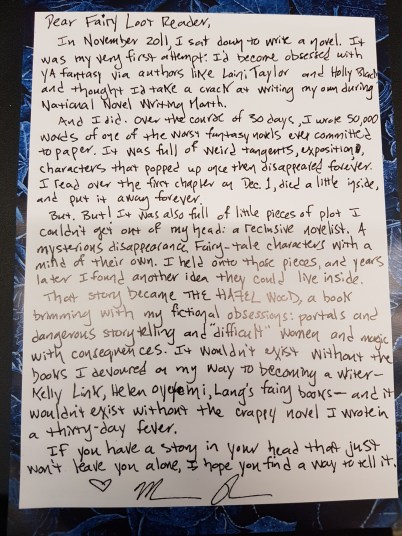 Dear Fairy Loot Reader,
In November 2011, I sat down to write a novel. It
was my very first attempt: I'd become obsessed with
YA fantasy via authors like Laini Taylor and Holly Black
and thought I'd take a crack at writing my own during
National Novel Writing Month.
And I did. Over the course of 30 days, I wrote 50,000
words of one of the worst fantasy novels ever committed
to paper. It was full of weird tangents, exposition,
characters that popped up once then disappeared forever.
I read over the first chapter on Dec. 1, died a little inside,
and put it away forever.
But. But! It was also full of little pieces of plot I
couldn't get out of my head: a reclusive novelist. A
mysterious disappearance. Fairy-tale characters with a
mind of their own. I held onto those pieces, and years
later I found another idea they could live inside.
That story became THE HAZEL WOOD, a book
brimming with my fictional obsessions: portals and
dangerous storytelling and "difficult" women and magic
with consequences. It wouldn't exist without the
books I devoured on my way to becoming a writer—
Kelly Link, Helen Oyeyemi, Lang's fairy books—and it
wouldn't exist without the crappy novel I wrote in
a thirty-day fever.
If you have a story in your head that just
won't leave you alone, I hope you find a way to tell it.